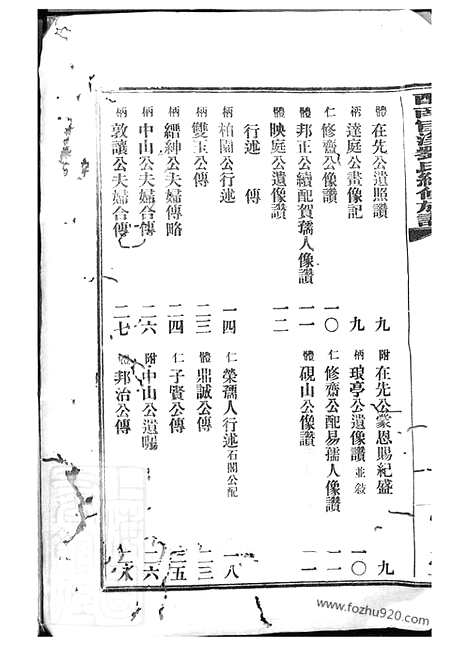 氏續修族譜
體 在先公遺照讚 九 附 在先公蒙恩賜紀盛 九
柄 達庭公畫像記 九 柄 琅亭公遺像讚 並敍 一〇
仁 修齋公像讚 一〇 仁 修齋公配易孺人像讚 一一
體 邦正公續配賀孺人像讚 一一 體 硯山公像讚 一一
體 映庭公遺像讚 一二
行述 傳
柄 柏園公行述 一四 仁 榮孺人行述 石閣公配 一八
柄 雙玉公傳 二三 體 鼎誠公傳 二三
柄 縉紳公夫婦傳略 二四 仁 子賢公傳 二五
柄 中山公夫婦合傳 二六 附 中山公遺囑 二六
柄 敦讓公夫婦合傳 二七 體 邦治公傳
www.fozhu920.com